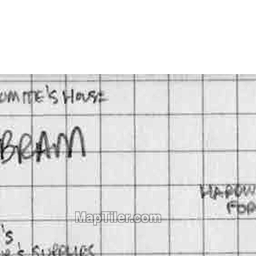 OMITE'S HOUSE
BRAM
HARDW
FOR
MapTiler.com
'S
'S SUPPLIES